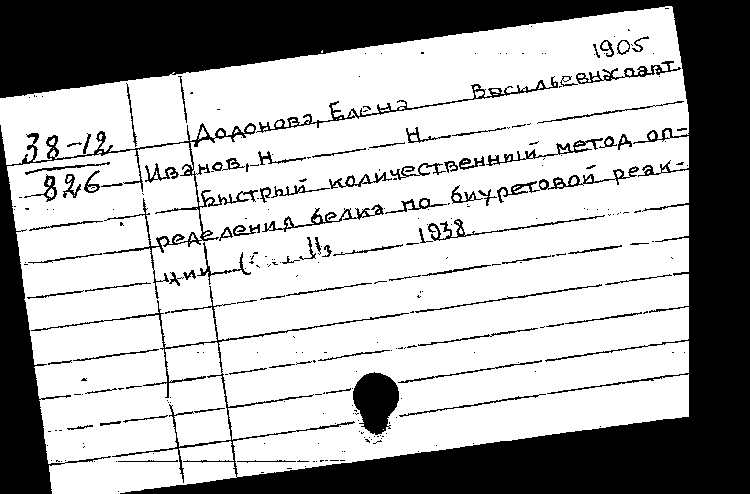 1905
38-12
826
Додонова, Елена Васильевна соавт.
Иванов, Н. Н.
Быстрый количественный метод оп-
ределения белка по биуретовой реак-
ции 1938